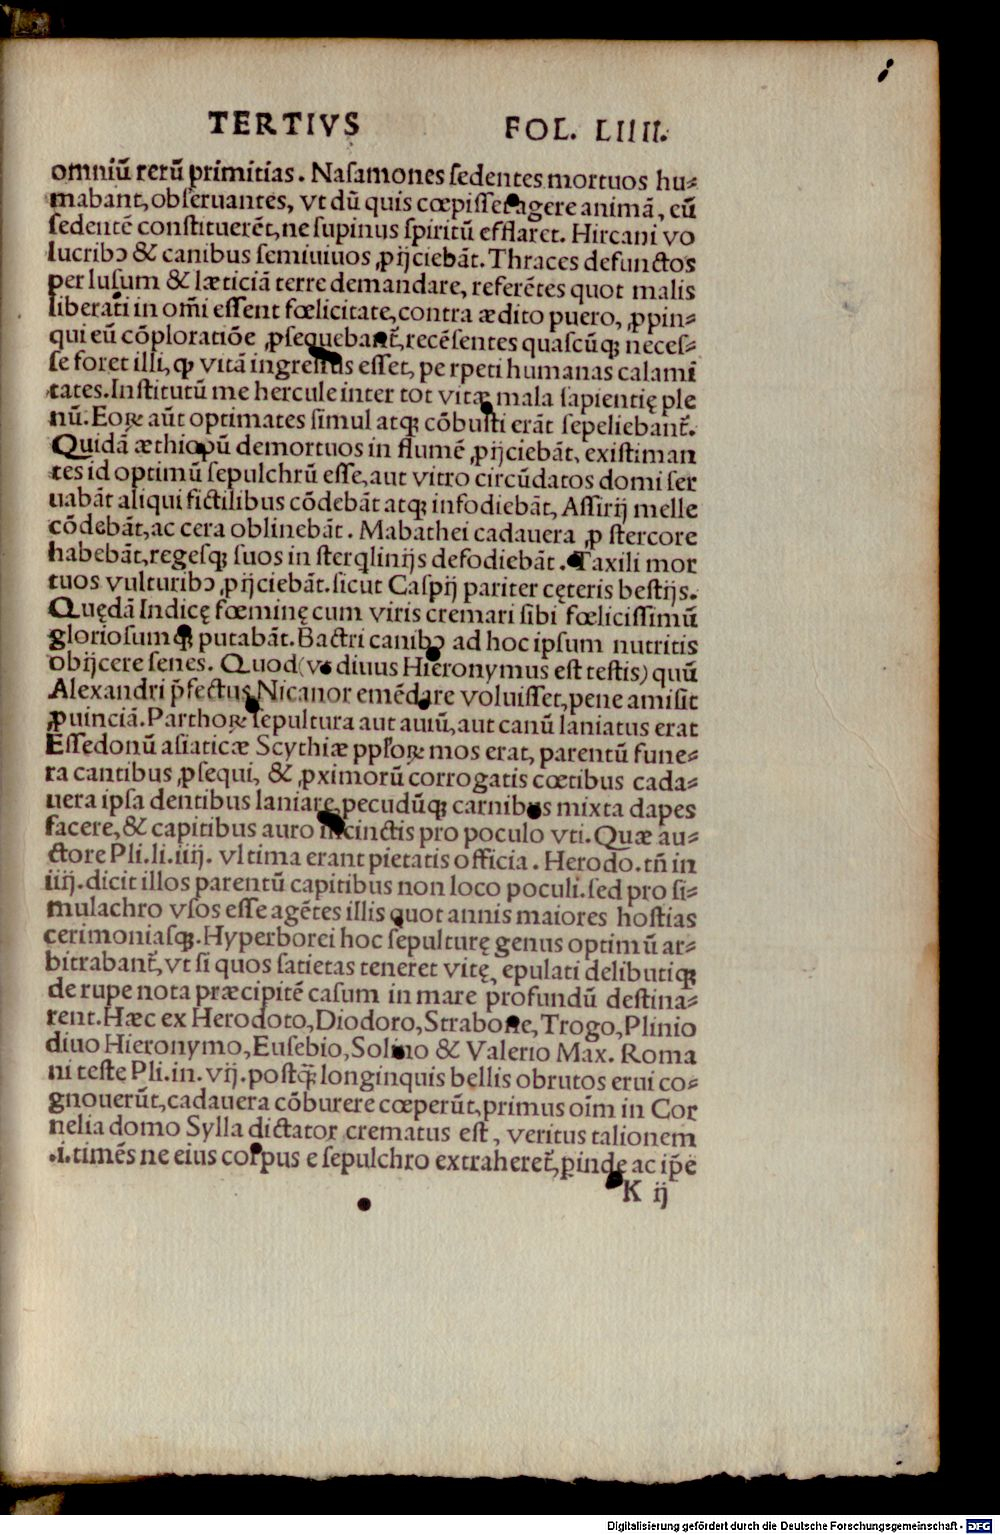 TERTIVS FOL. LIIII.
omniũ rerũ primitias. Naſamones ſedentes mortuos hu⸗
mabant, obſeruantes, vt dũ quis cœpiſſet agere animã, eũ
ſedentẽ conſtituerẽt, ne ſupinus ſpiritũ efflaret. Hircani vo
lucribꝰ & canibus ſemiuiuos ꝓijciebãt. Thraces defunctos
per luſum & læticiã terre demandare, referẽtes quot malis
liberati in om̃i eſſent fœlicitate, contra ædito puero, ꝓpin⸗
qui eũ cõploratiõe ꝓſequebant᷑, recẽſentes quaſcũqꝫ neceſ⸗
ſe foret illi, ꝙ vitã ingreſſus eſſet, pe rpeti humanas calami
tates. Inſtitutũ me hercule inter tot vitæ mala ſapientię ple
nũ. Eoꝝ aũt optimates ſimul atqꝫ cõbuſti erãt ſepeliebant᷑.
Quidã æthiopũ demortuos in flumẽ ꝓijciebãt, exiſtiman
tes id optimũ ſepulchrũ eſſe, aut vitro circũdatos domi ſer
uabãt aliqui fictilibus cõdebãt atqꝫ infodiebãt, Aſſirij melle
cõdebãt, ac cera oblinebãt. Mabathei cadauera ꝓ ſtercore
habebãt, regeſqꝫ ſuos in ſterqlinijs defodiebãt. Taxili mor
tuos vulturibꝰ ꝓijciebãt. ſicut Caſpij pariter cęteris beſtijs.
Quędã Indicę fœminę cum viris cremari ſibi fœliciſſimũ
glorioſumqꝫ putabãt. Bactri canibꝰ ad hoc ipſum nutritis
obijcere ſenes. Quod (vt diuus Hieronymus eſt teſtis) quũ
Alexandri p̃fectus Nicanor emẽdare voluiſſet, pene amiſit
ꝓuinciã. Parthoꝝ ſepultura aut auiũ, aut canũ laniatus erat
Eſſedonũ aſiaticæ Scythiæ ppl̃oꝝ mos erat, parentũ fune⸗
ra cantibus ꝓſequi, & ꝓximorũ corrogatis cœtibus cada⸗
uera ipſa dentibus laniare, pecudũqꝫ carnibus mixta dapes
facere, & capitibus auro incinctis pro poculo vti. Quæ au⸗
ctore Pli. li. iiij. vltima erant pietatis officia. Herodo. tñ in
iiij. dicit illos parentũ capitibus non loco poculi. ſed pro ſi⸗
mulachro vſos eſſe agẽtes illis quot annis maiores hoſtias
cerimoniaſqꝫ. Hyperborei hoc ſepulturę genus optimũ ar⸗
bitrabant᷑, vt ſi quos ſatietas teneret vitę, epulati delibutiqꝫ
de rupe nota præcipitẽ caſum in mare profundũ deſtina⸗
rent. Hæc ex Herodoto, Diodoro, Strabone, Trogo, Plinio
diuo Hieronymo, Euſebio, Solino & Valerio Max. Roma
ni teſte Pli. in. vij. poſtq̃ longinquis bellis obrutos erui co⸗
gnouerũt, cadauera cõburere cœperũt, primus oĩm in Cor
nelia domo Sylla dictator crematus eſt, veritus talionem
.i. timẽs ne eius corpus e ſepulchro extraheret᷑, ꝑinde ac ip̃e
K ij
Digitalisierung gefördert durch die Deutsche Forschungsgemeinschaft - DFG